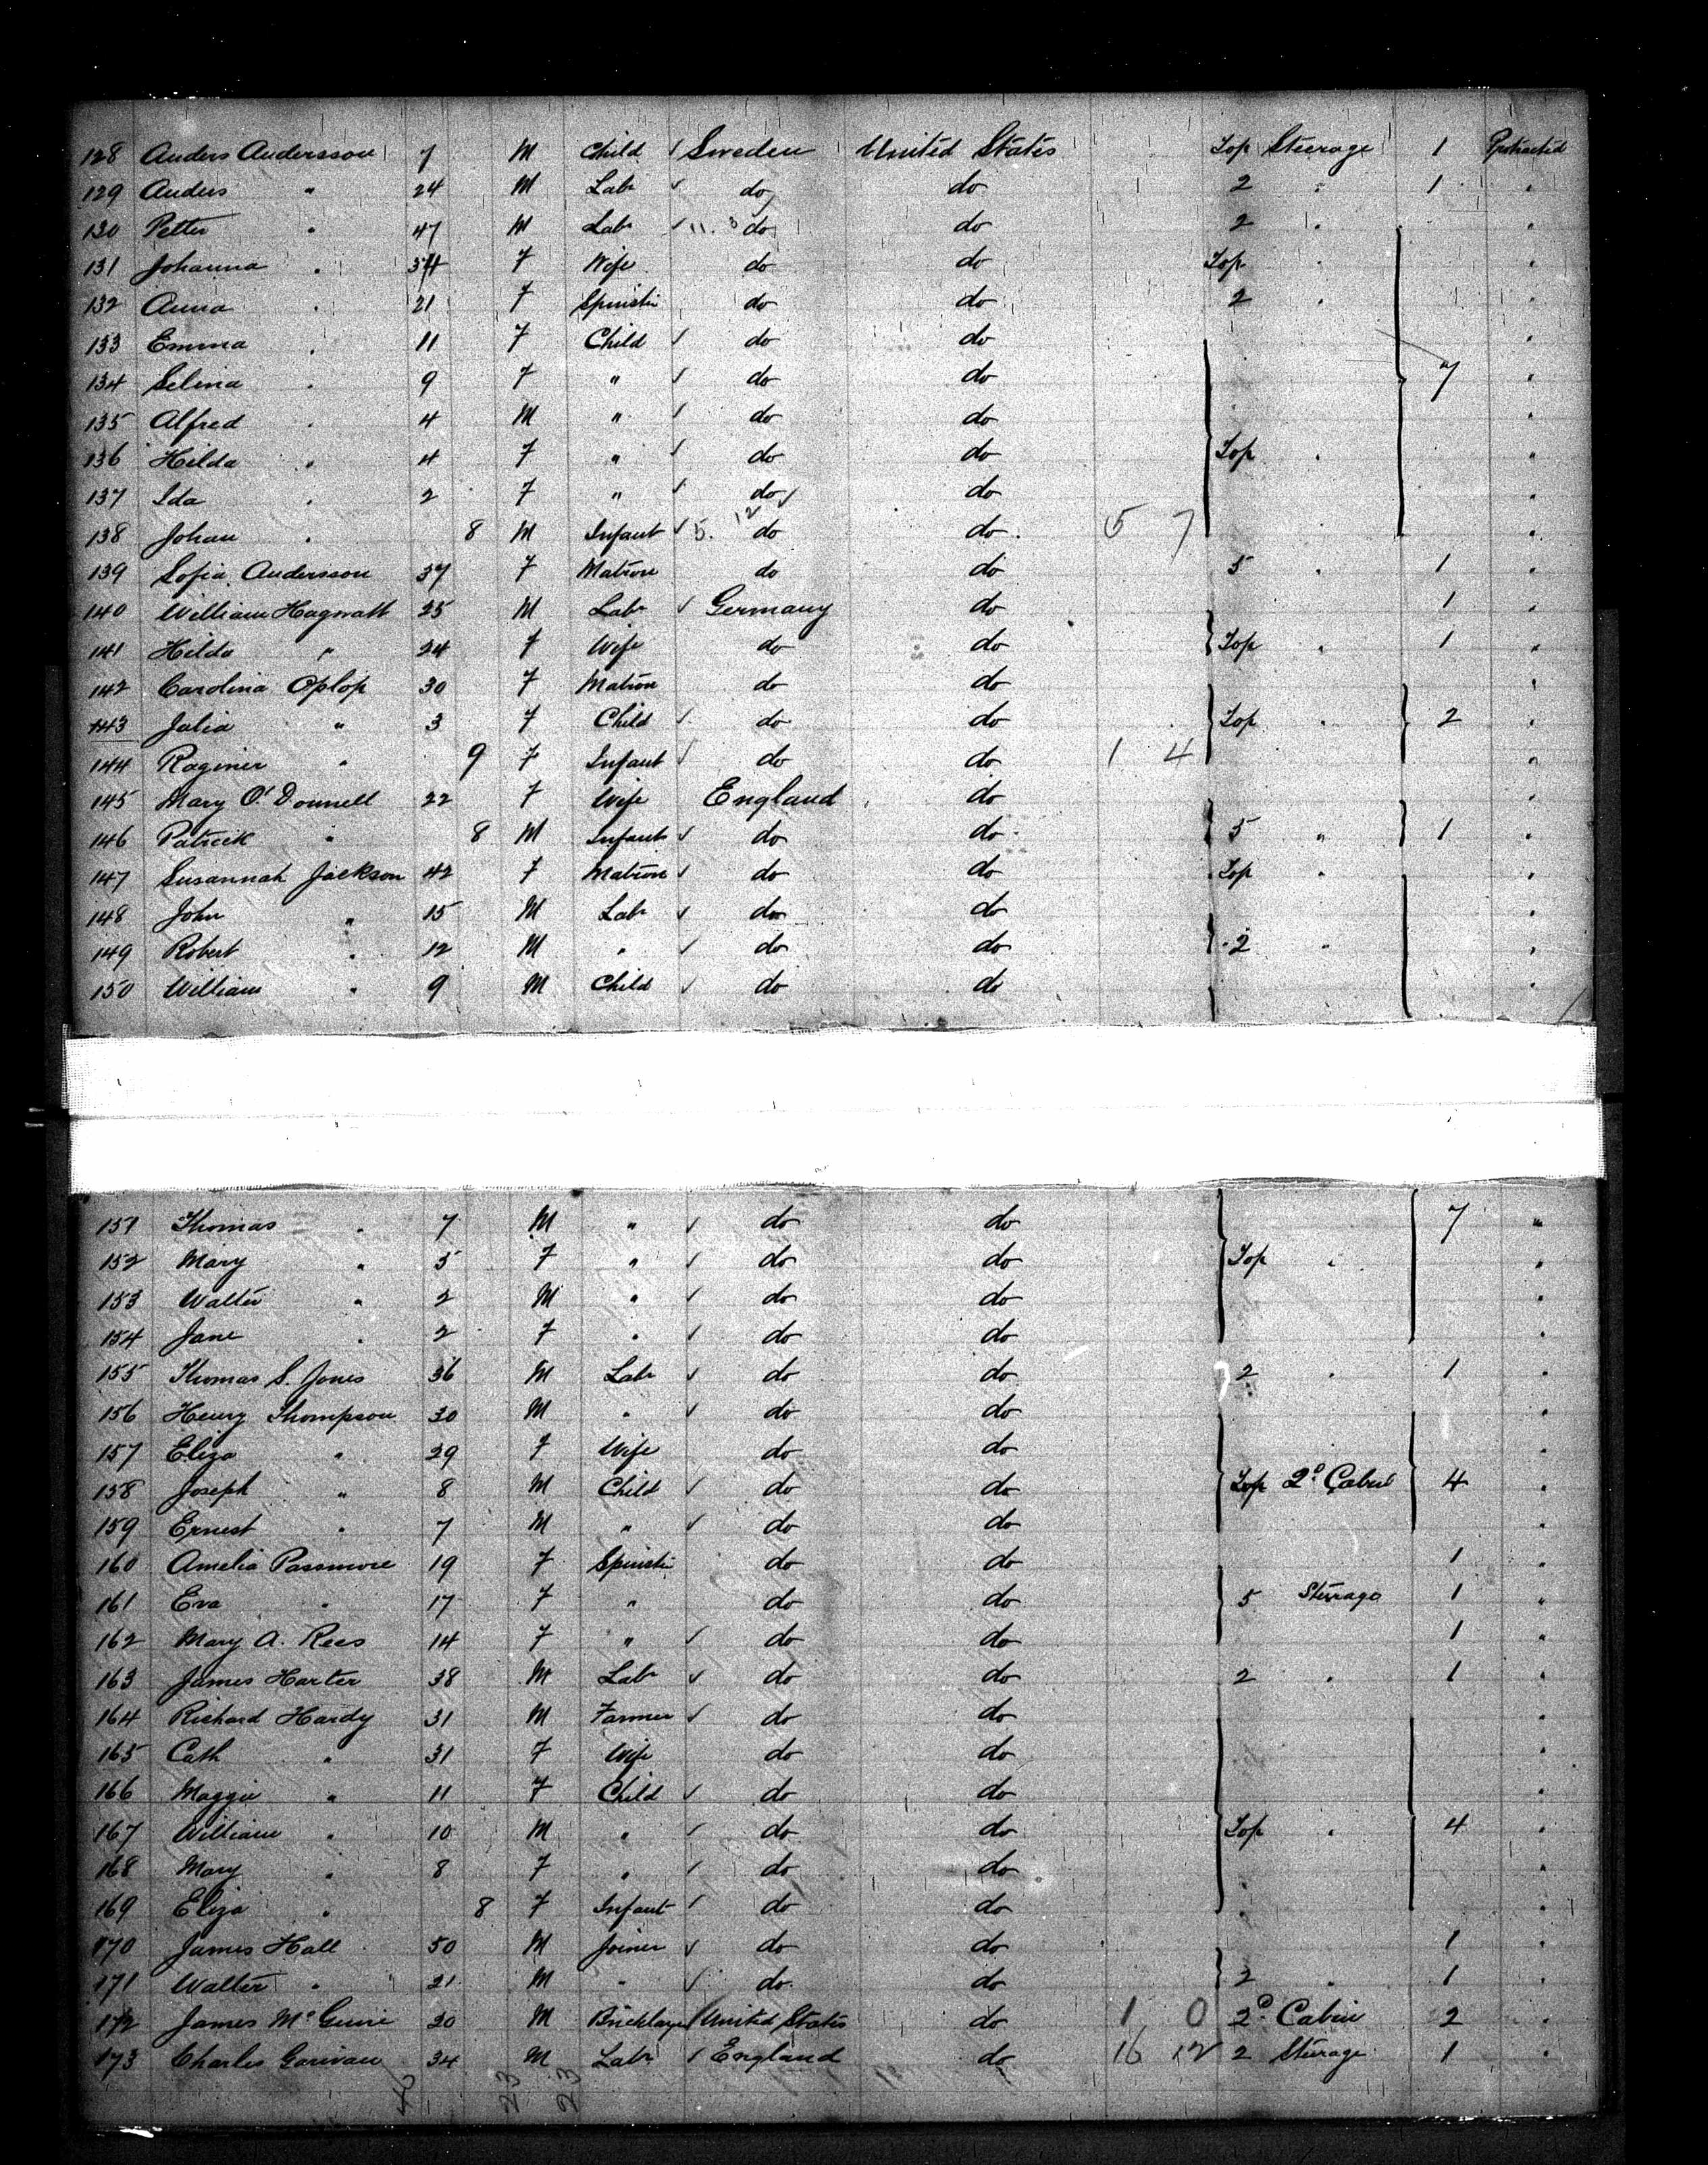 128 Anders Andersson 7 M Child Sweden United States Top Steerage 1 Protracted
129 Anders " 24 M Labr do do 2 " 1 "
130 Petter " 47 M Labr 11. 3 do do 2 " "
131 Johanna " 34 F Wife do do Top " "
132 Anna " 21 F Spinster do do 2 " "
133 Emma " 11 F Child do do "
134 Selina " 9 F " do do 7 "
135 Alfred " 4 M " do do "
136 Hilda " 4 F " do do Top " "
137 Ida " 2 F " do do "
138 Johan " 8 M Infant 5. 12 do do 5 7 " "
139 Sofia Andersson 37 F Matron do do 5 " 1 "
140 William Hagnath 25 M Labr Germany do 1 "
141 Hilda " 24 F Wife do do Top " 1 "
142 Carolina Oplop 30 F Matron do do "
143 Julia " 3 F Child do do Top " 2 "
144 Raginer " 9 F Infant do do 1 4 "
145 Mary O'Donnell 22 F Wife England do "
146 Patrick " 8 M Infant do do 5 " 1 "
147 Susannah Jackson 42 F Matron do do Top " "
148 John " 15 M Labr do do "
149 Robert " 12 M " do do 2 " "
150 William " 9 M Child do do "
151 Thomas " 7 M " do do 7 "
152 Mary " 5 F " do do Top " "
153 Walter " 2 M " do do "
154 Jane " 2 F " do do "
155 Thomas S. Jones 36 M Labr do do 2 " 1 "
156 Henry Thompson 30 M " do do "
157 Eliza " 29 F Wife do do "
158 Joseph " 8 M Child do do Top 2d Cabin 4 "
159 Ernest " 7 M " do do "
160 Amelia Passmore 19 F Spinster do do 1 "
161 Eva " 17 F " do do 5 Steerage 1 "
162 Mary A. Rees 14 F " do do 1 "
163 James Harter 38 M Labr do do 2 " 1 "
164 Richard Hardy 31 M Farmer do do "
165 Cath " 31 F Wife do do "
166 Maggie " 11 F Child do do "
167 William " 10 M " do do Top " 4 "
168 Mary " 8 F " do do "
169 Eliza " 8 F Infant do do "
170 James Hall 50 M Joiner do do 1 "
171 Walter " 21 M " do do 2 " 1 "
172 James McGuire 30 M Bricklayer United States do 1 0 2d Cabin 2 "
173 Charles Garivan 34 M Labr England do 16 12 2 Steerage 1 "
23 23